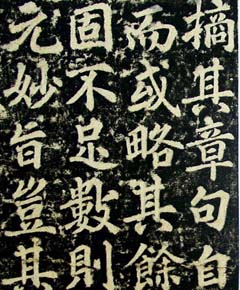 摘其章句自
而或略其餘
固不足數則
元妙旨豈其